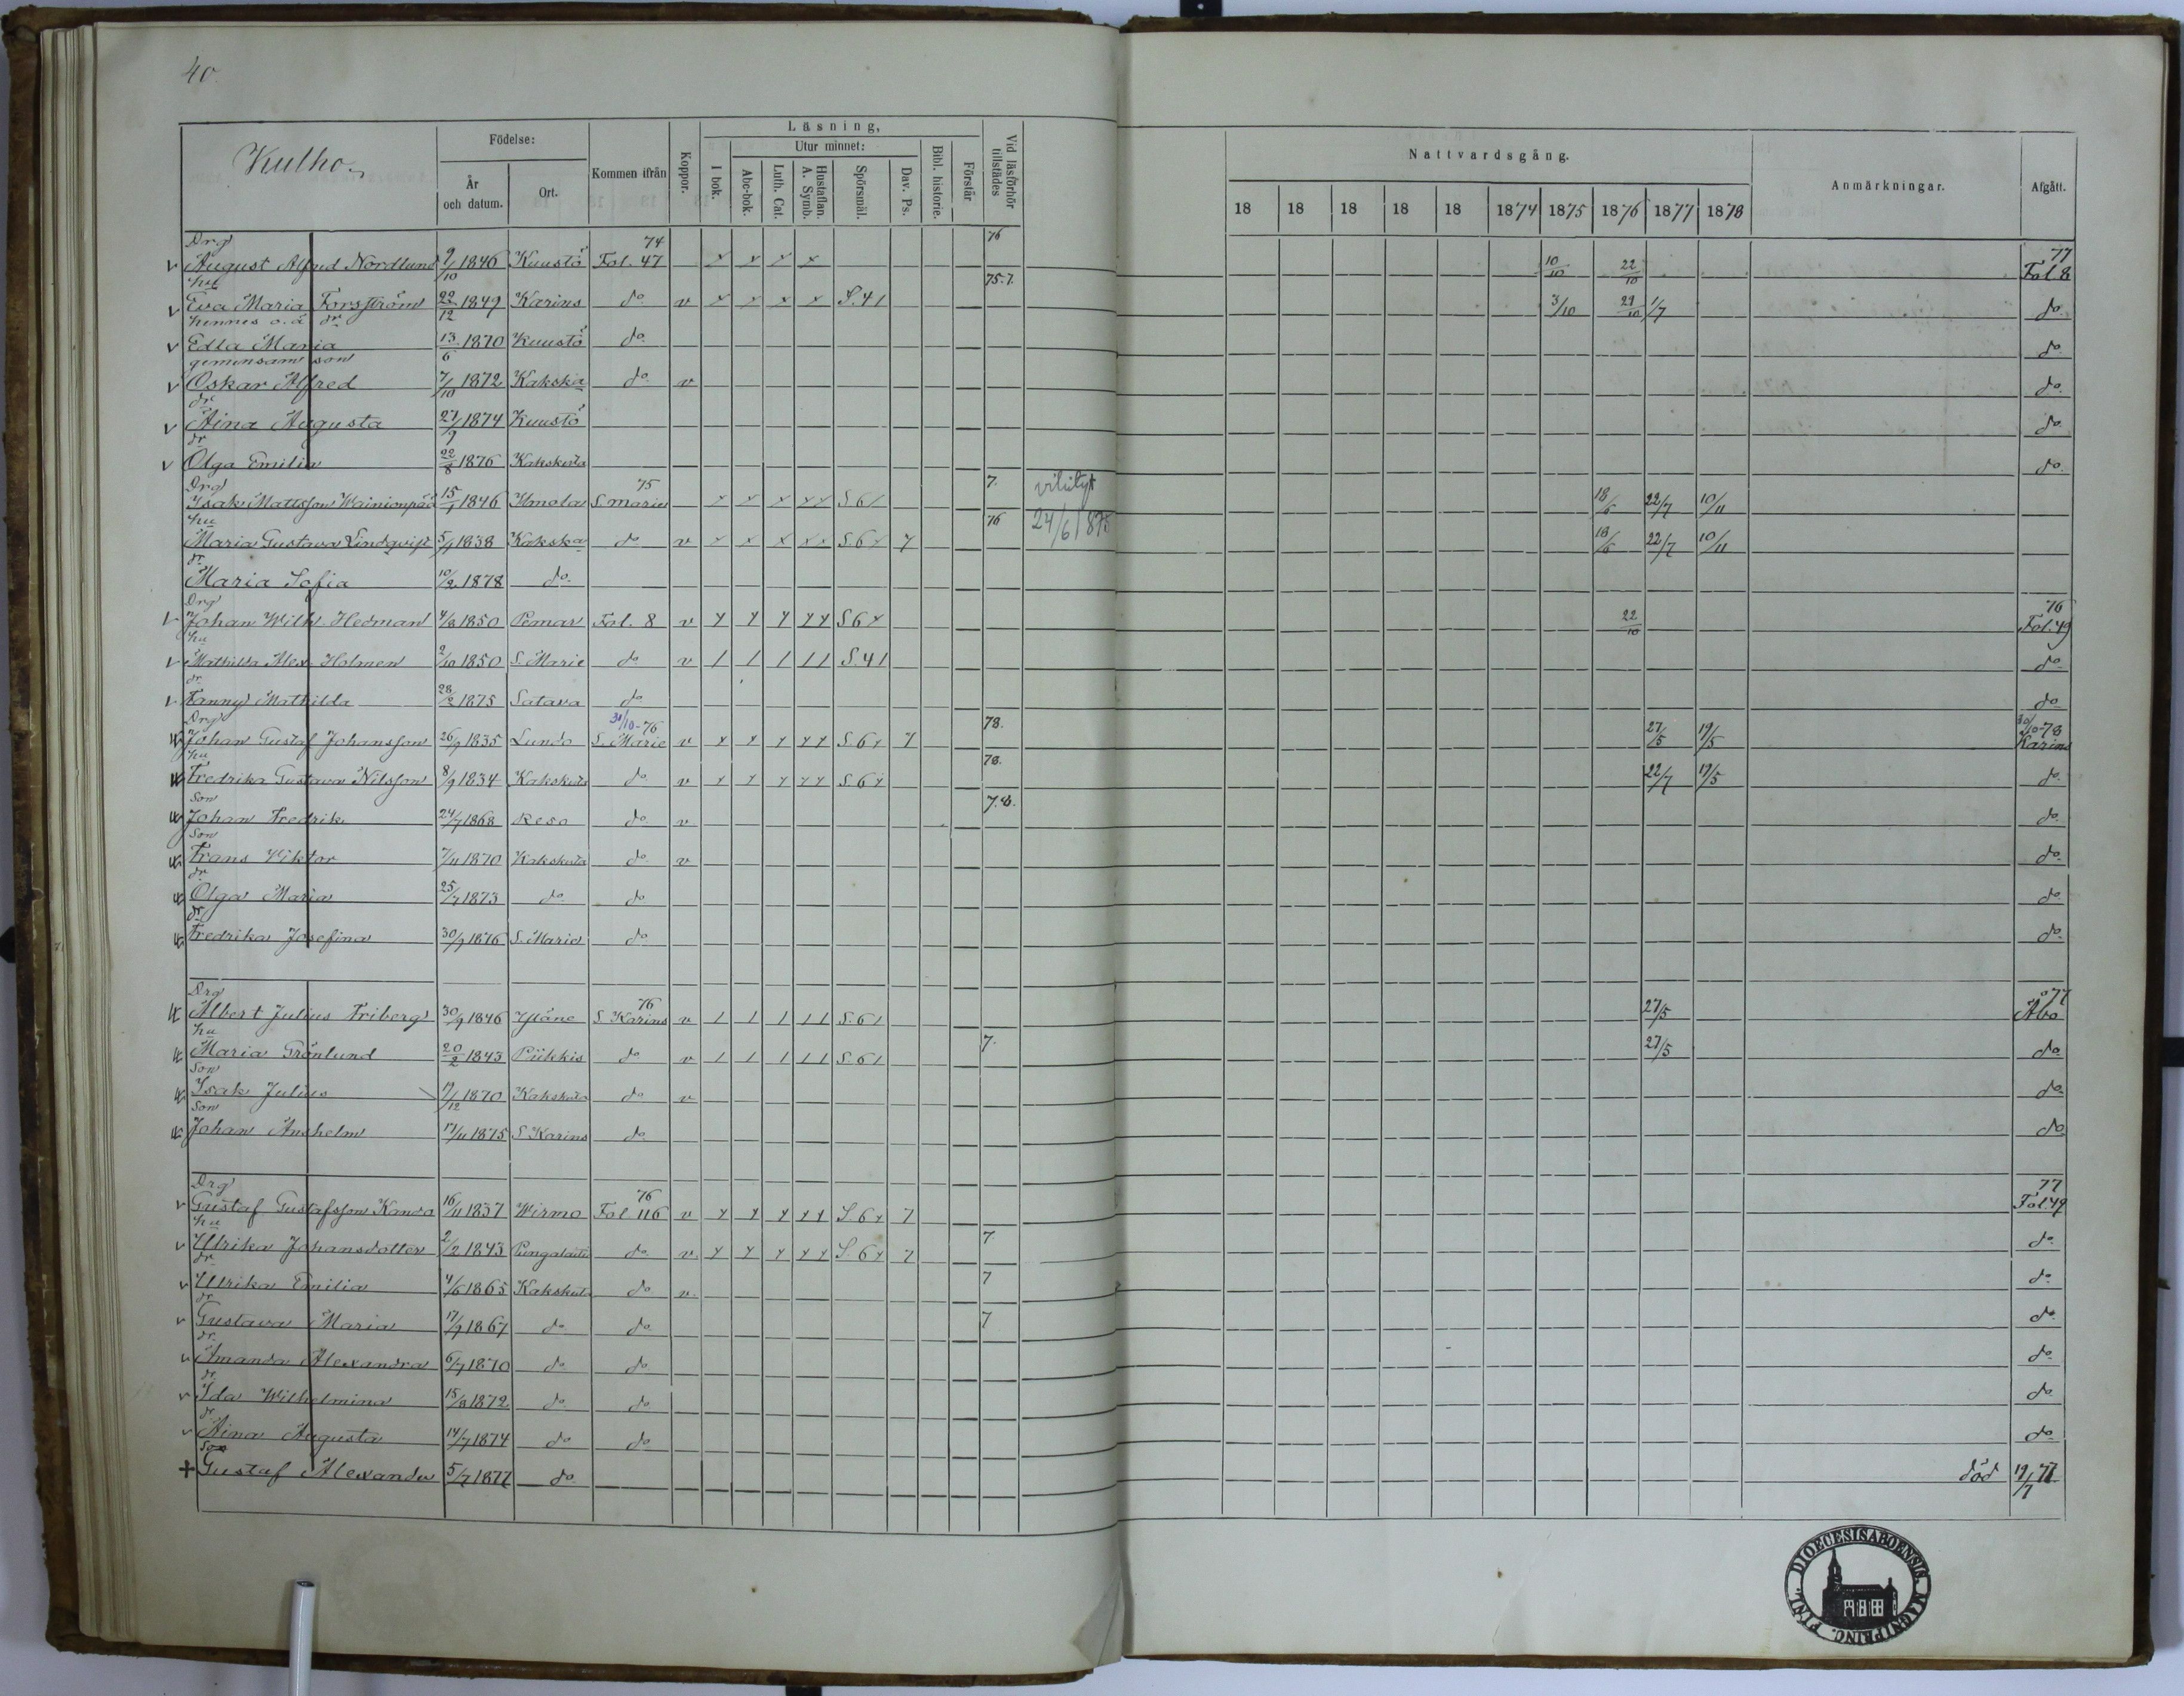 40.
Kulho.
Födelse:
År och datum.
Ort.
Kommen ifrån
Koppor.
Läsning,
I bok.
Utur minnet:
Abc-bok.
Luth. Cat.
Hustaflan. A. Symb.
Spörsmål.
Dav. Ps.
Bibl. historie.
Förstår
Vid läsförhör tillstädes
Nattvardsgång.
18 18 18 18 18 1874 1875 1876 1877 1878
Anmärkningar.
Afgått.
Drg 74 76 77
August Alfred Nordlund 9/10 1846 Kuustö Fol. 47 x x x x 10/10 22/10 Fol 8
hu 75.7.
Eva Maria Forsström 22/12 1849 Karins do v x x x x S.41 3/10 29/10 1/7 do
hennes o.ä dr
Edla Maria 13/6 1870 Kuustö do do
gemensam son
Oskar Alfred 7/10 1872 Kakska do v do
dr
Aina Augusta 27/9 1874 Kuustö do
dr
Olga Emilia 22/8 1876 Kakskerta do
Drg 75 7.
Isak Mattsson Wainionpää 15/1 1846 Ilmola S. Marie x x x xx S 61 18/6 22/7 10/11
hu 76 24/6 1875
Maria Gustava Lindqvist 5/9 1838 Kakska do v x x x xx S.6x 7 18/6 22/7 10/11
dr
Maria Sofia 10/2 1878 do
Drg 76
Johan Wilh. Hedman 4/8 1850 Pemar Fol. 8 v x x x xx S6x 22/10 Fol.49
hu
Mathilda Alex. Holmen 2/10 1850 S. Marie do v 1 1 1 11 S.41 do
dr
Fanny Mathilda 28/2 1875 Satava do do
Drg 30/10-76 78. 30/10-78
Johan Gustaf Johansson 26/9 1835 Lundo S. Marie v x x x xx S.6x 7 27/5 19/5 Karins
hu 78.
Fredrika Gustava Nilsson 8/9 1834 Kakskerta do v x x x xx S.6x 22/7 19/5 do
Son 7.8.
Johan Fredrik 24/7 1868 Reso do v do
Son
Frans Viktor 7/11 1870 Kakskerta do v do
dr
Olga Maria 25/7 1873 do do do
dr
Fredrika Josefina 30/9 1876 S. Marie do do
Drg 76 77
Albert Julius Friberg 30/9 1846 Yläne S Karins v 1 1 1 11 S.61 27/5 Åbo
hu 7.
Maria Grönlund 20/2 1843 Piikkis do v 1 1 1 11 S.61 27/5 do
Son
Isak Julius 9/12 1870 Kakskerta do v do
Son
Johan Anshelm 17/11 1875 S Karins do do
Drg 76 77
Gustaf Gustafsson Kanda 16/11 1837 Wirmo Fol 116 v x x x xx S.6x 7 Fol.49
hu 7
Ulrika Johansdotter 2/2 1843 do v. x x x xx S.6x 7 do
dr 7
Ulrika Emilia 4/6 1865 Kakskerta do v. do
dr 7
Gustava Maria 17/9 1867 do do do
dr
Amanda Alexandra 6/7 1870 do do do
dr
Ida Wilhelmina 15/8 1872 do do do
dr
Aina Augusta 14/7 1874 do do do
Son
Gustaf Alexander 5/7 1877 do död 19/7 77
FINL. DIOECESIS ABOENSIS. MAGNI PRINC.